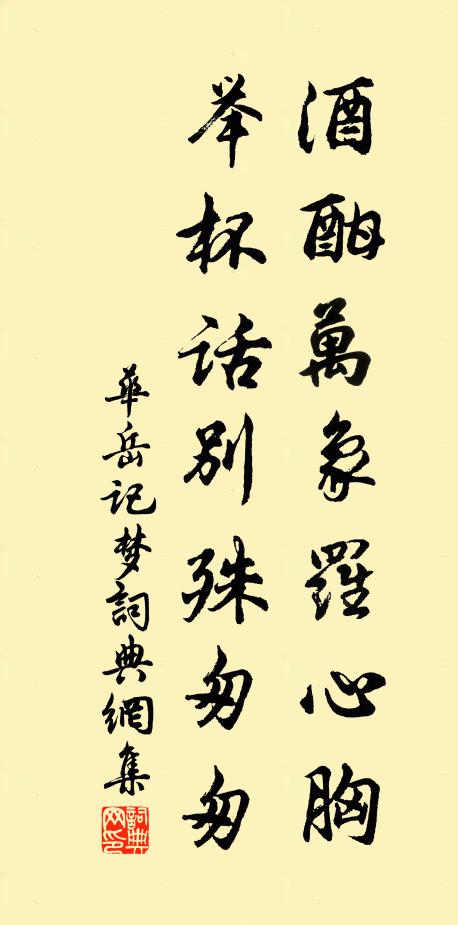 酒酣萬象羅心胸
举杯話别殊匆匆
華岳記梦詞典網集
詞典网印